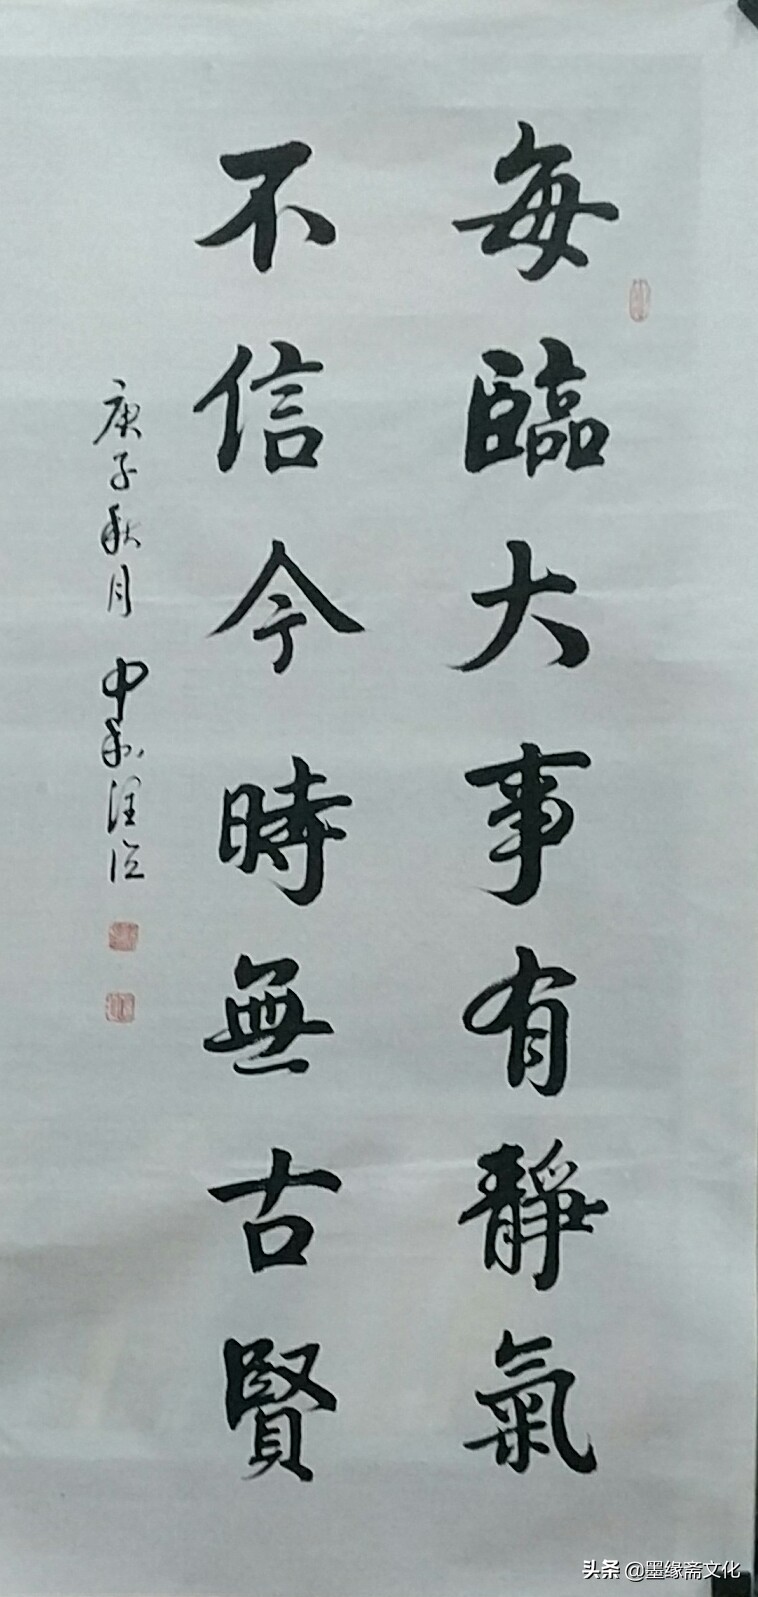 每臨大事有靜氣
不信今時無古賢
庚子秋月 中和
头条 @墨缘斋文化